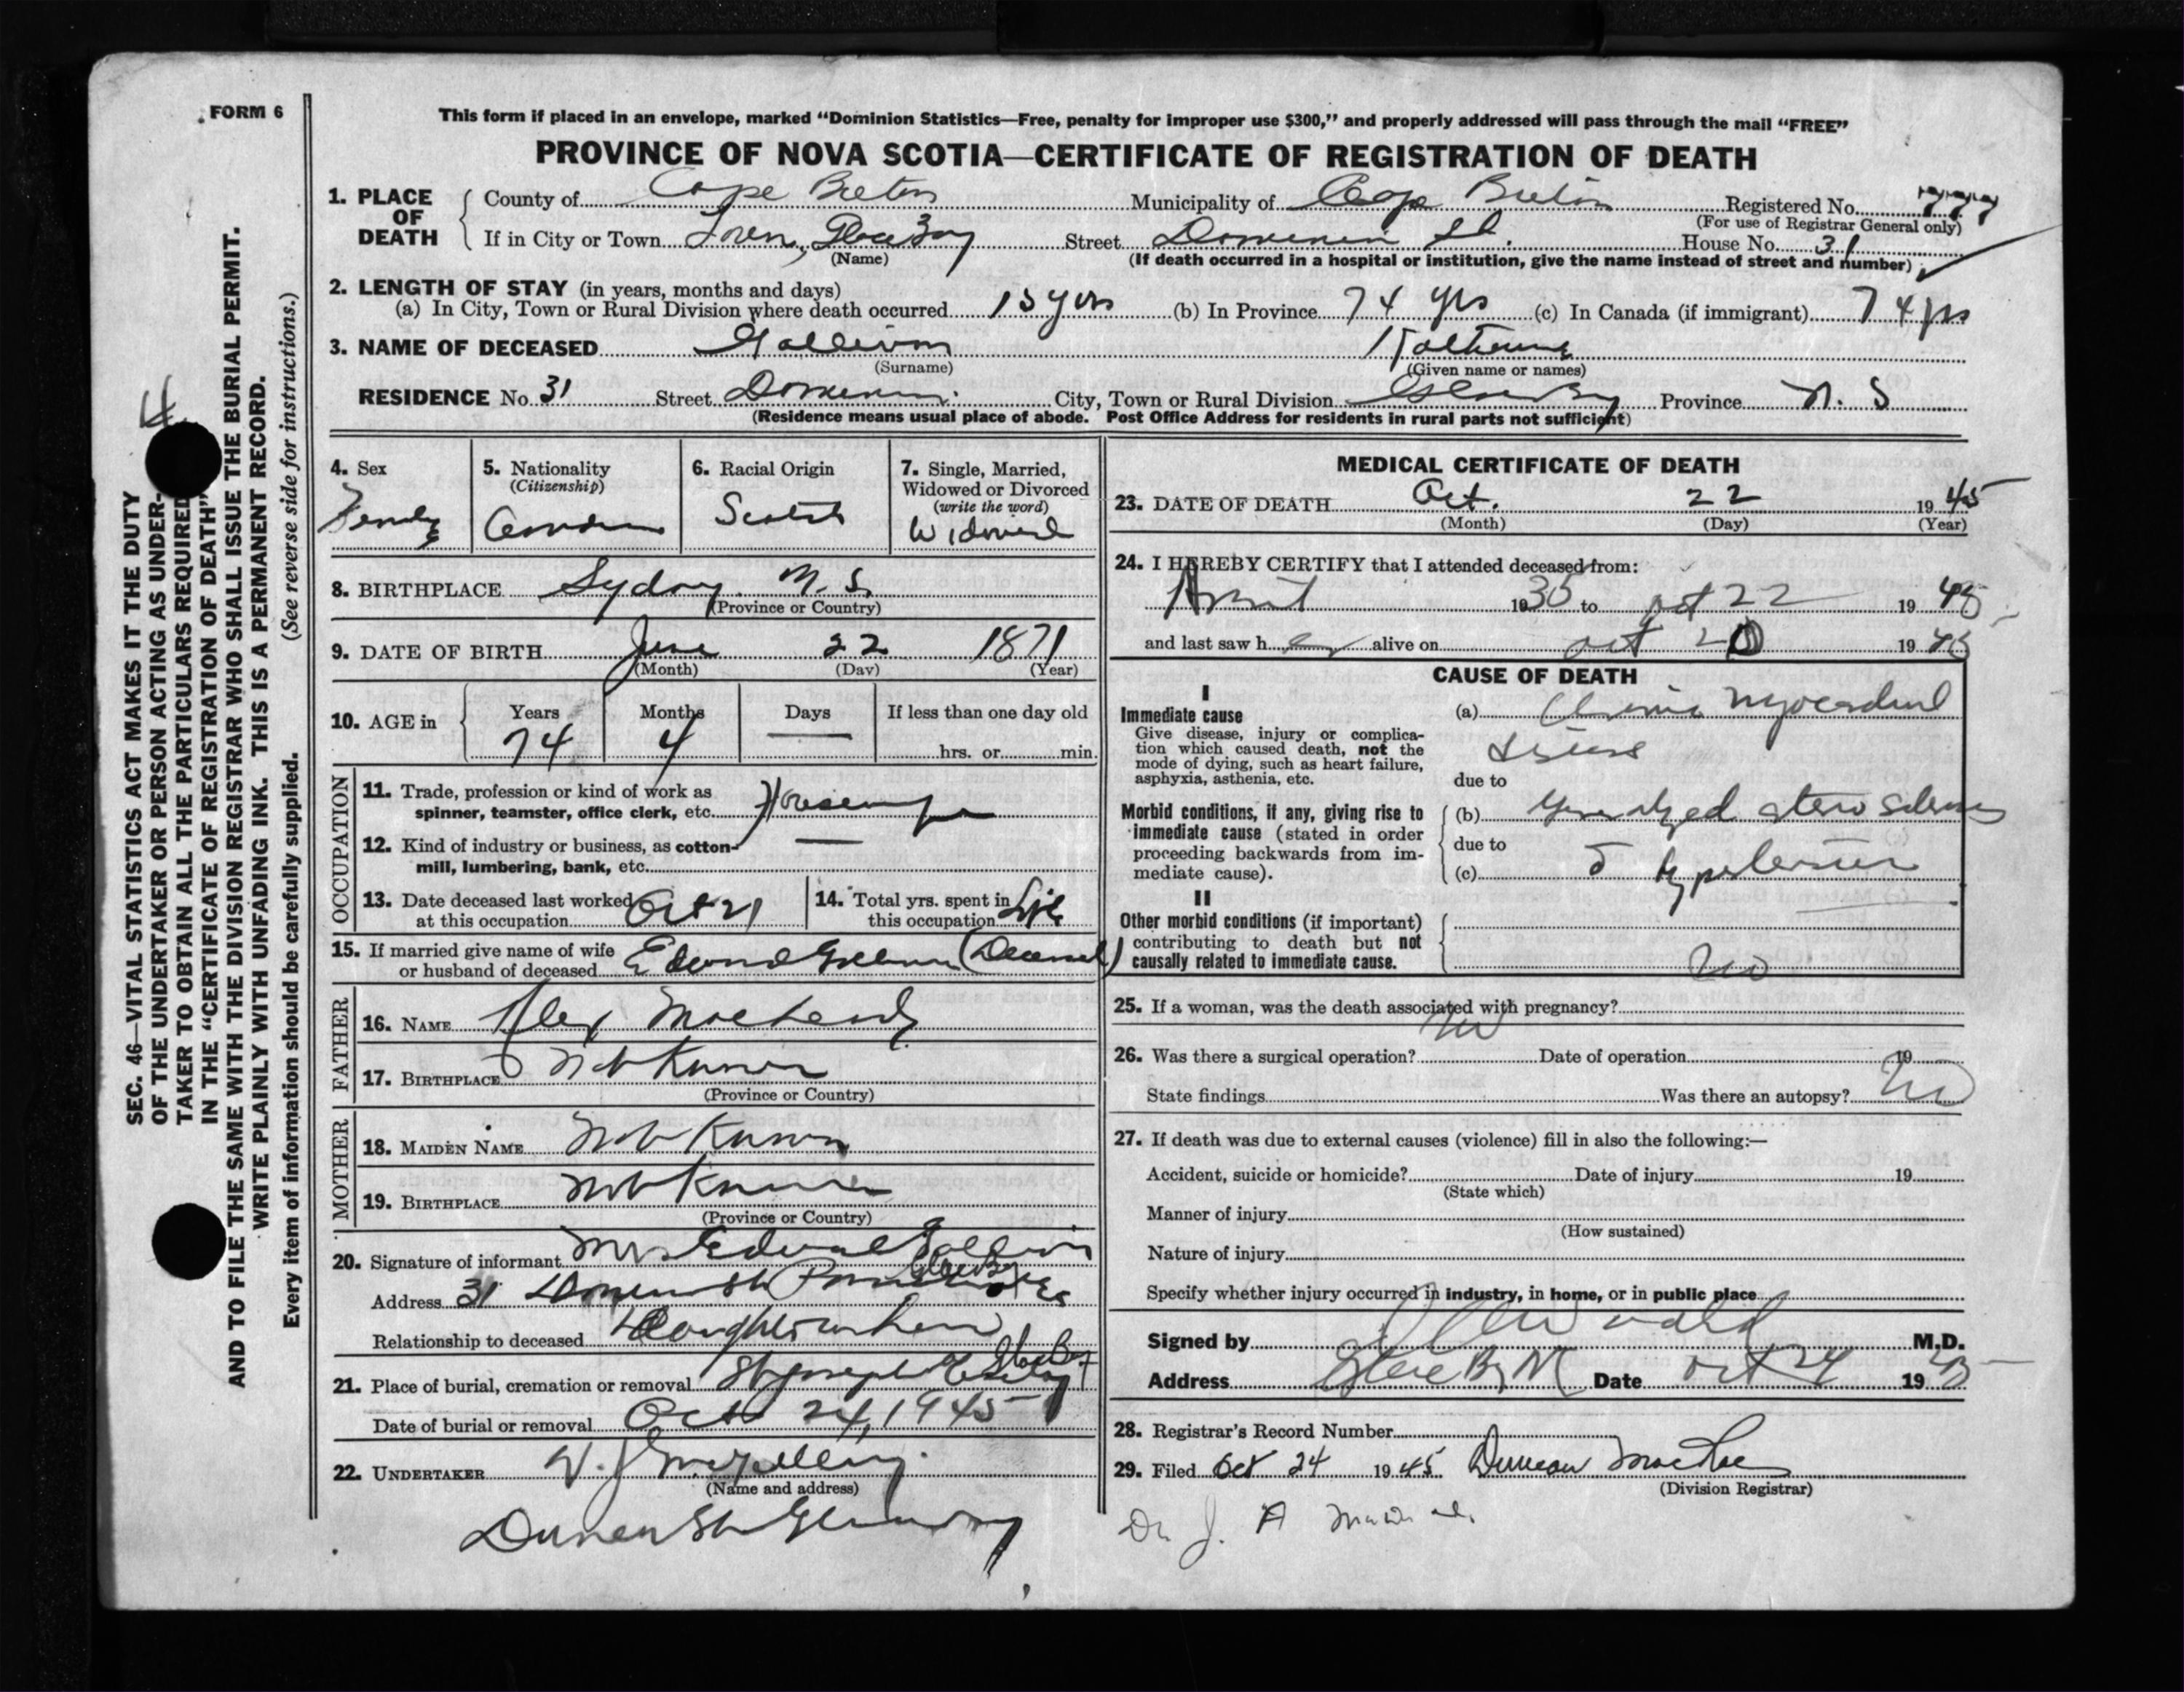 FORM 6
This form if placed in an envelope, marked “Dominion Statistics—Free, penalty for improper use $300,” and properly addressed will pass through the mail “FREE”
PROVINCE OF NOVA SCOTIA—CERTIFICATE OF REGISTRATION OF DEATH
1. PLACE OF DEATH
County of Cape Breton Municipality of Cape Breton Registered No. 777
(For use of Registrar General only)
If in City or Town Town, Glace Bay Street Dominion St. House No. 31
(Name) (If death occurred in a hospital or institution, give the name instead of street and number)
2. LENGTH OF STAY (in years, months and days)
(a) In City, Town or Rural Division where death occurred 15 yrs (b) In Province 74 yrs (c) In Canada (if immigrant) 74 yrs
3. NAME OF DECEASED Gallivan Katherine
(Surname) (Given name or names)
RESIDENCE No. 31 Street Dominion City, Town or Rural Division Glace Bay Province N. S
(Residence means usual place of abode. Post Office Address for residents in rural parts not sufficient)
4. Sex
Female
5. Nationality
(Citizenship)
Canadian
6. Racial Origin
Scotch
7. Single, Married,
Widowed or Divorced
(write the word)
Widowed
8. BIRTHPLACE Sydney N.S.
(Province or Country)
9. DATE OF BIRTH June 22 1871
(Month) (Day) (Year)
10. AGE in
Years Months Days If less than one day old
74 4 — hrs. or min.
OCCUPATION
11. Trade, profession or kind of work as
spinner, teamster, office clerk, etc. Housewife
12. Kind of industry or business, as cotton- —
mill, lumbering, bank, etc.
13. Date deceased last worked
at this occupation Oct 21
14. Total yrs. spent in
this occupation Life
15. If married give name of wife
or husband of deceased Edward Gallivan (Deceased)
FATHER
16. NAME Alex
17. BIRTHPLACE Not Known
(Province or Country)
MOTHER
18. MAIDEN NAME Not Known
19. BIRTHPLACE Not Known
(Province or Country)
20. Signature of informant Mrs Edward Gallivan
Address 31 Dominion St Glace Bay
Relationship to deceased Daughter in law
21. Place of burial, cremation or removal St Joseph Glace Bay
Date of burial or removal Oct 24, 1945
22. UNDERTAKER W. J.
(Name and address)
St Glace Bay
MEDICAL CERTIFICATE OF DEATH
23. DATE OF DEATH Oct. 22 1945
(Month) (Day) (Year)
24. I HEREBY CERTIFY that I attended deceased from:
1935 to Oct 22 1945
and last saw h er alive on Oct 20 1945
CAUSE OF DEATH
I
Immediate cause
Give disease, injury or complica-
tion which caused death, not the
mode of dying, such as heart failure,
asphyxia, asthenia, etc.
(a) Chronic Myocardial
disease
due to
Morbid conditions, if any, giving rise to
immediate cause (stated in order
proceeding backwards from im-
mediate cause).
(b) Generalized
due to
(c) c̄ hypertension
II
Other morbid conditions (if important)
contributing to death but not
causally related to immediate cause.
25. If a woman, was the death associated with pregnancy? No
26. Was there a surgical operation? No Date of operation 19
State findings Was there an autopsy? No
27. If death was due to external causes (violence) fill in also the following:—
Accident, suicide or homicide? Date of injury 19
(State which)
Manner of injury
(How sustained)
Nature of injury
Specify whether injury occurred in industry, in home, or in public place
Signed by M.D.
Address Glace Bay Date Oct 24 1945
28. Registrar's Record Number
29. Filed Oct 24 1945. Duncan MacRae
(Division Registrar)
Dr J. A
SEC. 46—VITAL STATISTICS ACT MAKES IT THE DUTY
OF THE UNDERTAKER OR PERSON ACTING AS UNDER-
TAKER TO OBTAIN ALL THE PARTICULARS REQUIRED
IN THE “CERTIFICATE OF REGISTRATION OF DEATH”
AND TO FILE THE SAME WITH THE DIVISION REGISTRAR WHO SHALL ISSUE THE BURIAL PERMIT.
WRITE PLAINLY WITH UNFADING INK. THIS IS A PERMANENT RECORD.
Every item of information should be carefully supplied. (See reverse side for instructions.)